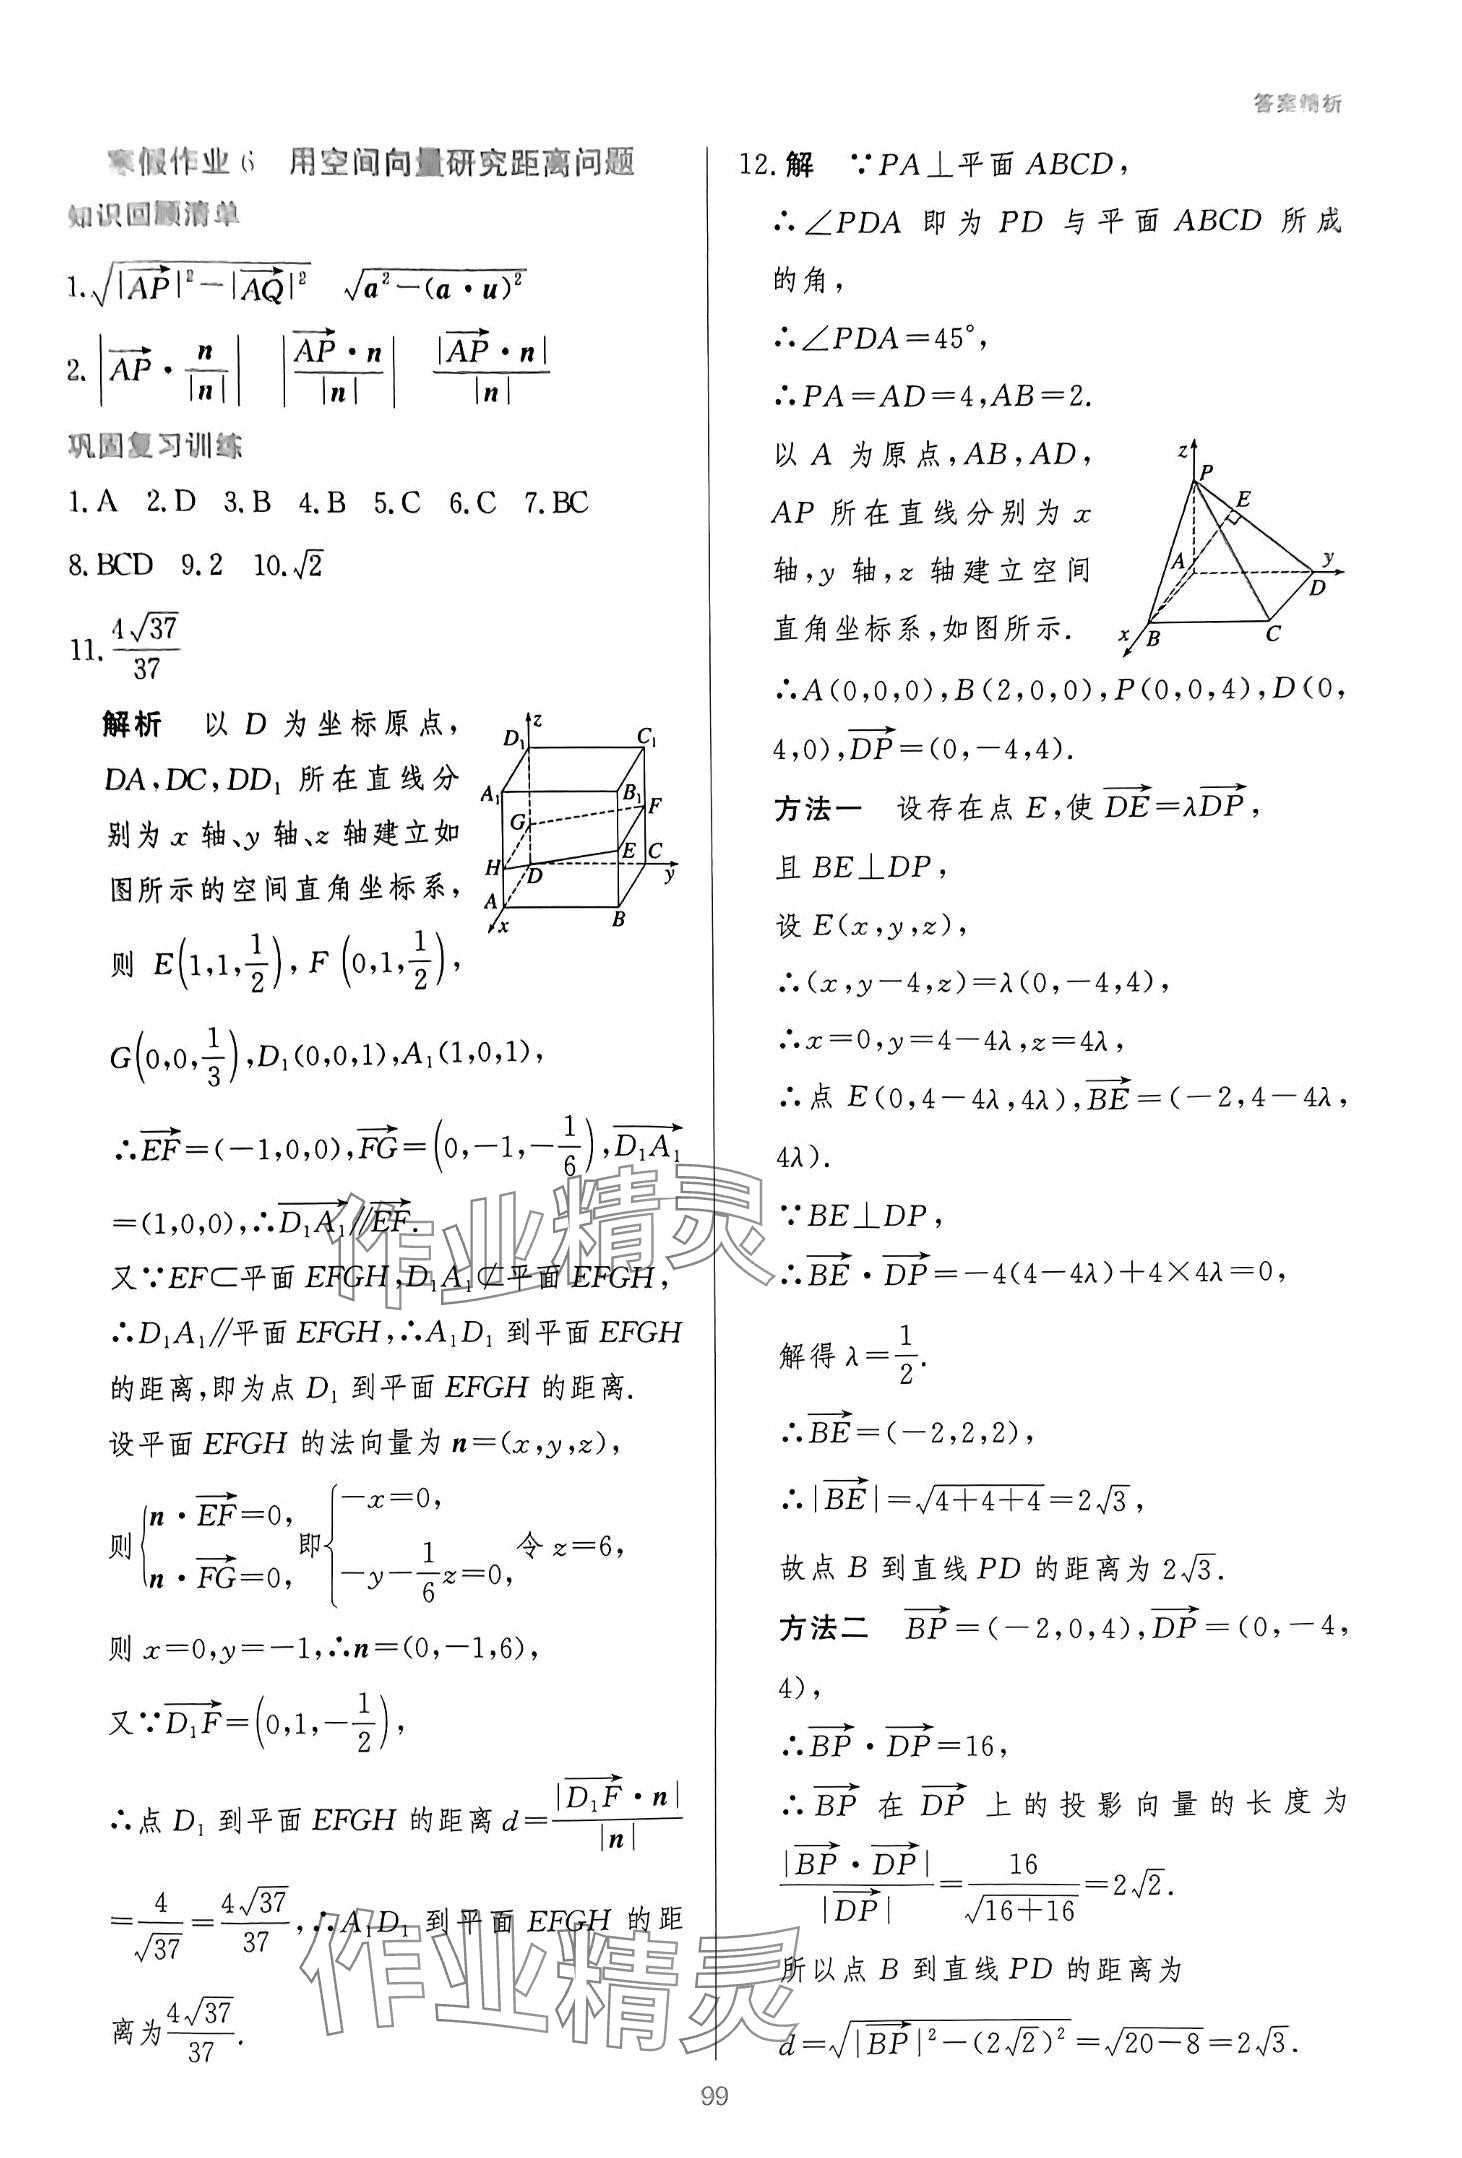 答案精析
寒假作业6 用空间向量研究距离问题
知识回顾清单
1.√(|AP→|²－|AQ→|²) √(a²－(a·u)²)
2.|AP→·n/|n|| |AP→·n/|n|| |AP→·n|/|n|
巩固复习训练
1.A 2.D 3.B 4.B 5.C 6.C 7.BC
8.BCD 9.2 10.√2
11.4√37/37
解析 以 D 为坐标原点，
DA,DC,DD₁ 所在直线分
别为 x 轴、y 轴、z 轴建立如
图所示的空间直角坐标系，
则 E(1,1,1/2),F(0,1,1/2),
z
D₁
C₁
A₁
B₁
F
G
H
E
C
D
y
A
B
x
G(0,0,1/3),D₁(0,0,1),A₁(1,0,1),
∴EF→＝(－1,0,0),FG→＝(0,－1,－1/6),D₁A₁→
＝(1,0,0),∴D₁A₁→∥EF→.
又∵EF⊂平面 EFGH,D₁A₁⊄平面 EFGH,
∴D₁A₁∥平面 EFGH,∴A₁D₁ 到平面 EFGH
的距离,即为点 D₁ 到平面 EFGH 的距离.
设平面 EFGH 的法向量为 n＝(x,y,z),
则{n·EF→＝0, n·FG→＝0, 即{－x＝0, －y－1/6z＝0, 令 z＝6,
则 x＝0,y＝－1,∴n＝(0,－1,6),
又∵D₁F→＝(0,1,－1/2),
∴点 D₁ 到平面 EFGH 的距离 d＝|D₁F→·n|/|n|
＝4/√37＝4√37/37,∴A₁D₁ 到平面 EFGH 的距
离为4√37/37.
12.解 ∵PA⊥平面 ABCD,
∴∠PDA 即为 PD 与平面 ABCD 所成
的角,
∴∠PDA＝45°,
∴PA＝AD＝4,AB＝2.
以 A 为原点,AB,AD,
AP 所在直线分别为 x
轴,y 轴,z 轴建立空间
直角坐标系,如图所示.
z
P
E
A
y
D
x
B
C
∴A(0,0,0),B(2,0,0),P(0,0,4),D(0,
4,0),DP→＝(0,－4,4).
方法一 设存在点 E,使DE→＝λDP→,
且 BE⊥DP,
设 E(x,y,z),
∴(x,y－4,z)＝λ(0,－4,4),
∴x＝0,y＝4－4λ,z＝4λ,
∴点 E(0,4－4λ,4λ),BE→＝(－2,4－4λ,
4λ).
∵BE⊥DP,
∴BE→·DP→＝－4(4－4λ)＋4×4λ＝0,
解得 λ＝1/2.
∴BE→＝(－2,2,2),
∴|BE→|＝√(4＋4＋4)＝2√3,
故点 B 到直线 PD 的距离为 2√3.
方法二 BP→＝(－2,0,4),DP→＝(0,－4,
4),
∴BP→·DP→＝16,
∴BP→在DP→上的投影向量的长度为
|BP→·DP→|/|DP→|＝16/√(16＋16)＝2√2.
所以点 B 到直线 PD 的距离为
d＝√(|BP→|²－(2√2)²)＝√(20－8)＝2√3.
作业精灵
作业精灵
99